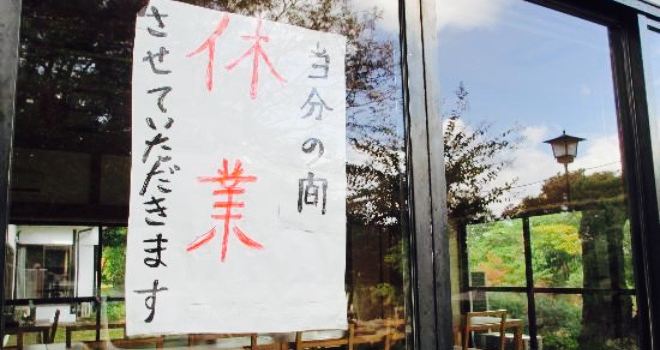 当分の間
休業
させていただきます